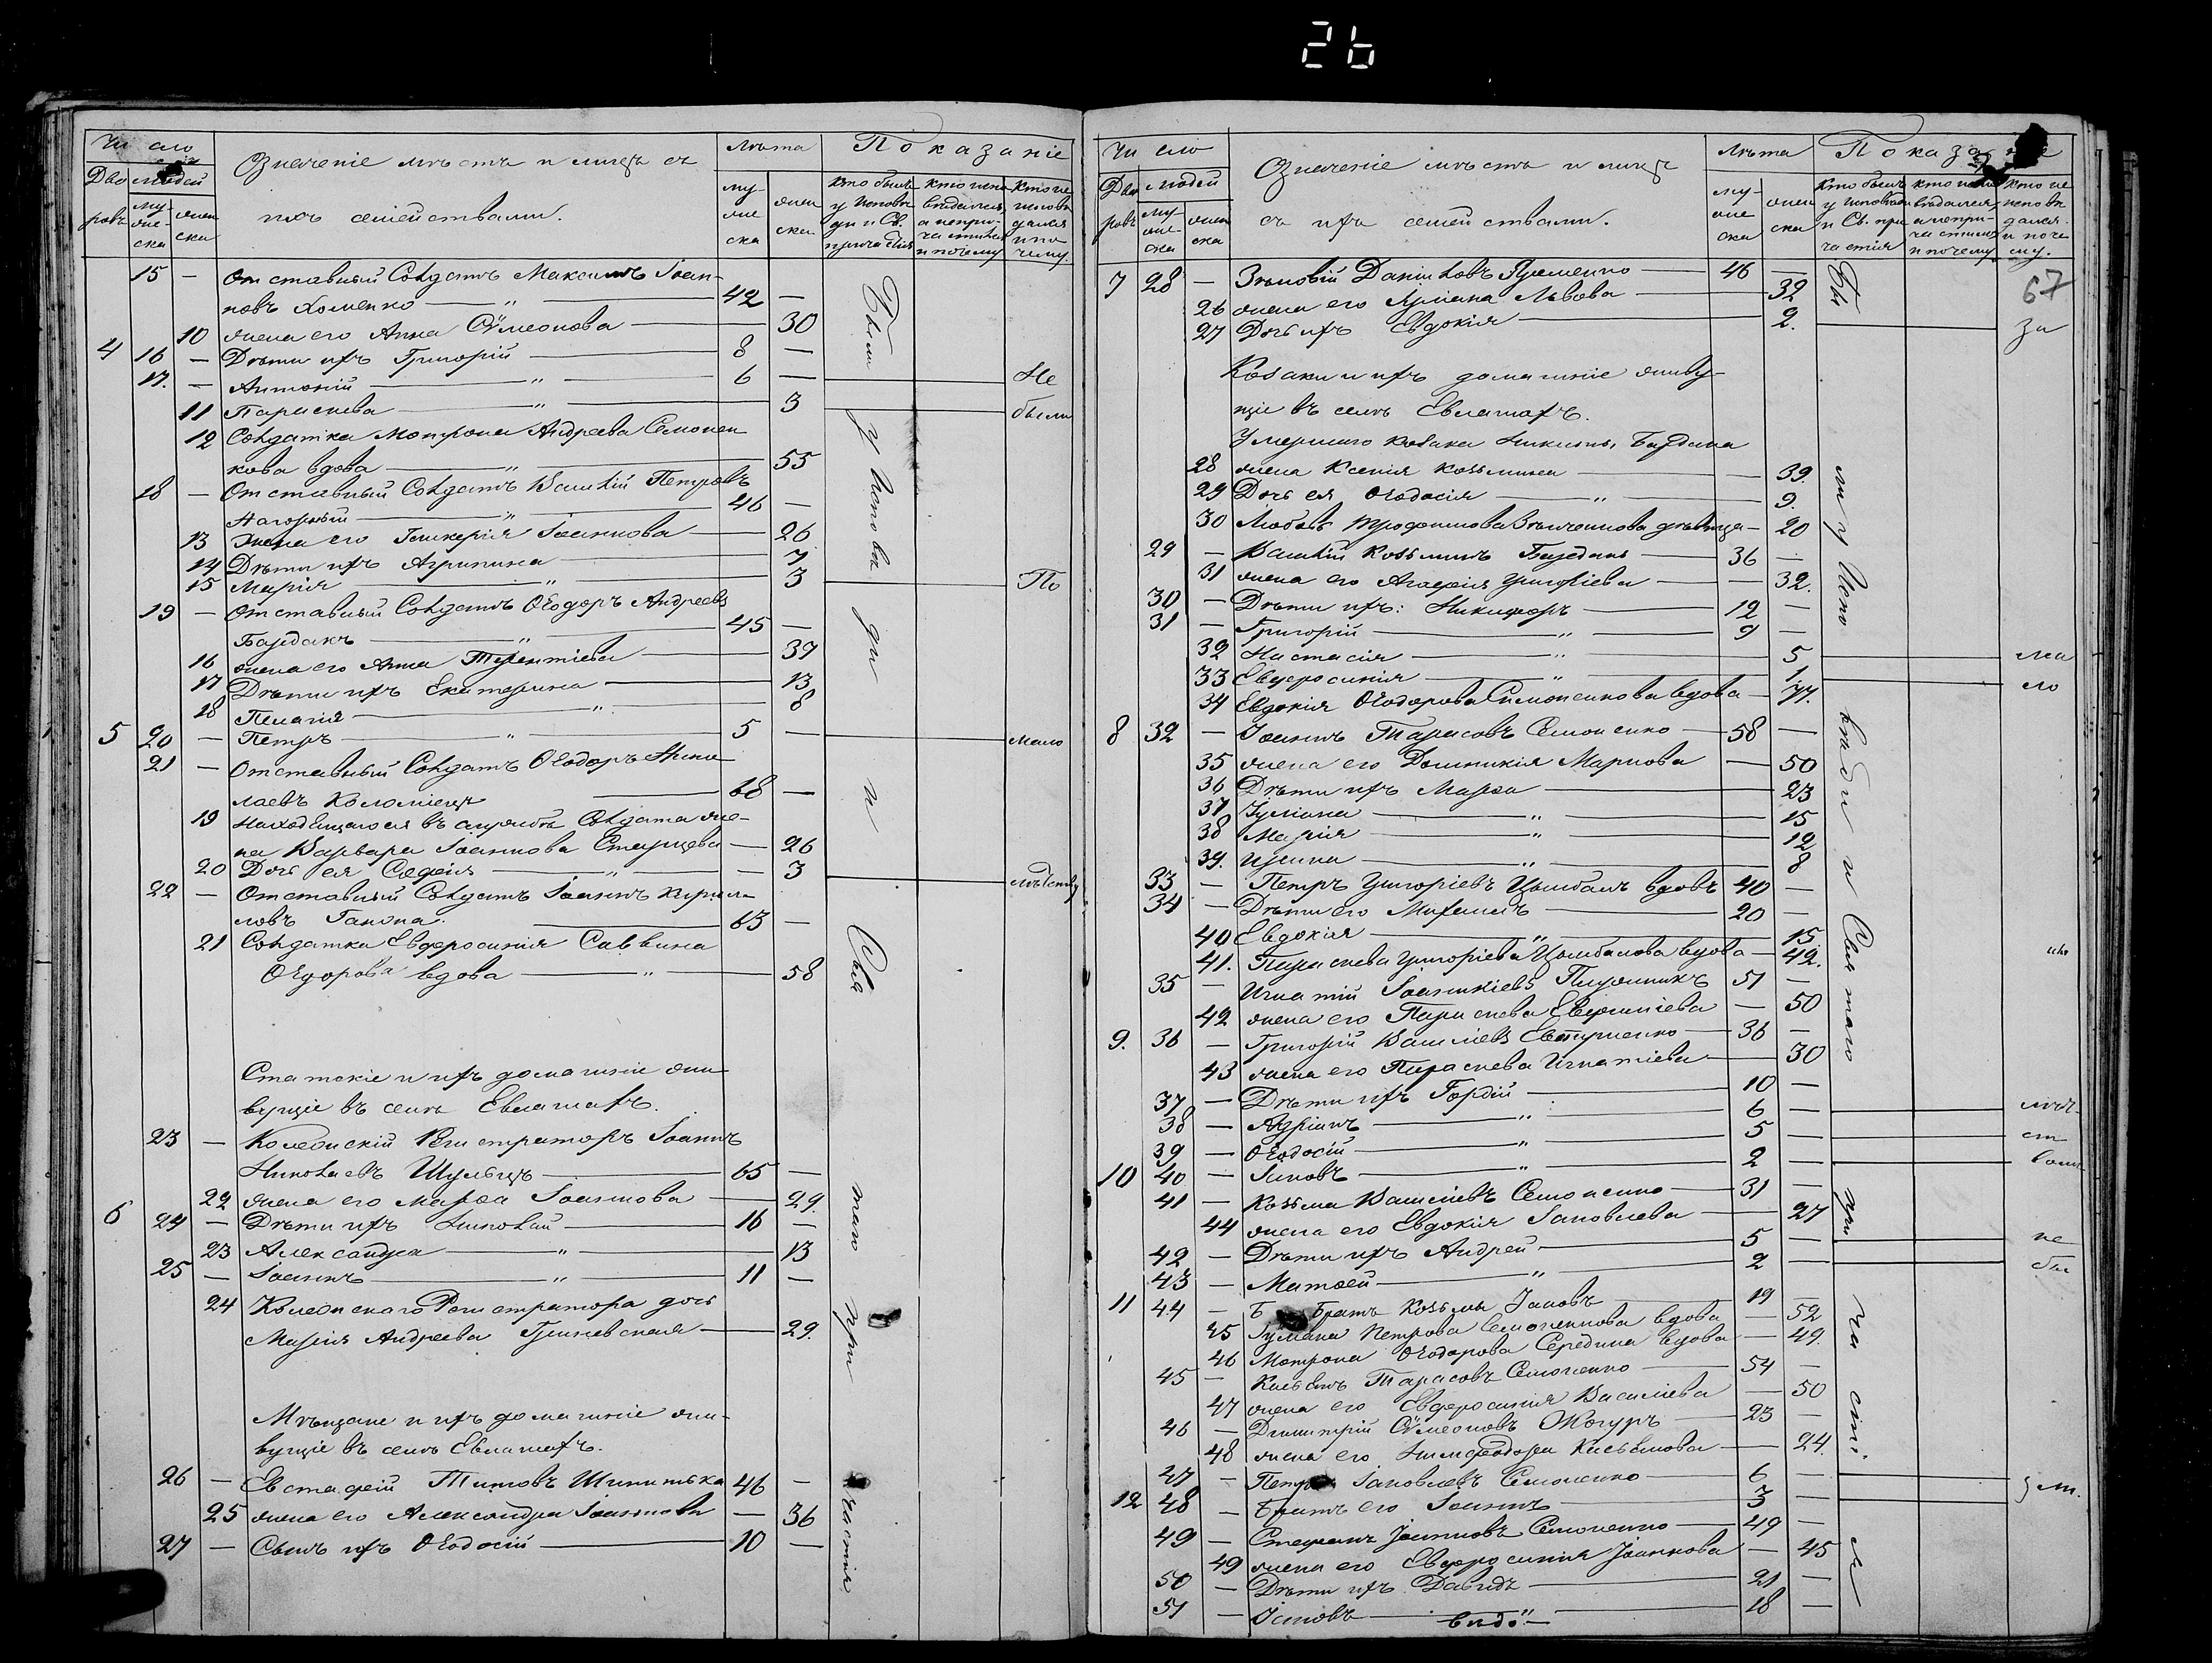 26
Число
Показаніе
Лѣта
Означеніе мѣстъ и лицъ съ
ихъ семействами.
Дворовъ
Людей
мужеска
женска
кто былъ у исповѣди и Св. причастія
кто исповѣдался, а непричастился и почему
кто не исповѣдался и почему.
15 — Отставный Солдатъ Максимъ Іоан-
новъ Хоменко — " — 42 —
10 жена его Анна Сѷмеонова — 30
4 16 — Дѣти ихъ Григорій — 8 —
17. — Антоній — " — 6 — Не
11 Параскева — " — 3 были
12 Солдатка Мотрона Андреева Семонен-
кова вдова — " — 55
18 — Отставный Солдатъ Василій Петровъ
Нагорный — " — 46 —
13 жена его Гликерія Іоаннова — 26
14 Дѣти ихъ Агрипина — 7
15 Марія — " — 3 По
19 — Отставный Солдатъ Ѳеодоръ Андреевъ
Байдакъ — " — 45 —
16 жена его Анна Терентіева — 37
17 Дѣти ихъ Екатерина — 13
18 Пелагія — " — 8
5 20 — Петръ — " — 5 — мало
21 — Отставный Солдатъ Ѳеодоръ Нико-
лаевъ Коломіецъ — 68 —
19 Находящагося въ службѣ Солдата же-
на Варвара Іоаннова Старцева — 26
20 Дочь ея Софія — " — 3 лѣтству
22 — Отставный Солдатъ Іоаннъ Кирил-
ловъ Гапона — 63 —
21 Солдатка Евфросинія Саввина
Ѳедорова вдова — " — 58
Статскіе и ихъ домашніе жи-
вущіе въ селѣ Евлашахъ.
23 — Колежскій Регистраторъ Іоаннъ
Николаевъ Шульгцъ — 65 —
22 жена его Марѳа Іоаннова — 29.
6 24 — Дѣти ихъ Николай — 16 —
23 Александра — " — 13
25 — Іоаннъ — " — 11 —
24 Колежскаго Регистратора дочь
Марія Андреева — 29.
Мѣщане и ихъ домашніе жи-
вущіе въ селѣ Евлашахъ.
26 — Евстафій Титовъ Шипитька 46 —
25 жена его Александра Іоаннова — 36
27 — Сынъ ихъ Ѳеодосій — 10 —
Были у исповѣди и Святаго причастія
Число
Означеніе мѣстъ и лицъ
съ ихъ семействами.
Лѣта
Показаніе
Дворовъ
Людей
мужеска
женска
кто былъ у исповѣди и Св. причастія
кто исповѣдался а непричастился и почему
кто не исповѣдался и почему.
67
7 28 — Зѣновій Даніиловъ — 46 —
26 жена его Львова — 32
27 Дочь ихъ Евдокія — 2. за
Козаки и ихъ домашніе живу-
щіе въ селѣ Евлашахъ.
Умершаго козака Никиты Байдака
28 жена Ксенія Козьмина — 39.
29 Дочь ея Ѳеодосія — " — 9.
30 Любовь Трофимова дѣвица — 20
29 — Василій Козьминъ Байдакъ — 36 —
31 жена его Агафія Григоріева — 32.
30 — Дѣти ихъ: Никифоръ — 12 —
31 — Григорій — " — 9 —
32 Настасія — " — 5 ма
33 Евфросинія — " — 1. ло
34 Евдокія Ѳеодорова Симоненкова вдова — 77.
8 32 — Іоаннъ Тарасовъ Семоненко — 58 —
35 жена его Домникія Маркова — 50
36 Дѣти ихъ Марѳа — 23
37 Іуліана — " — 15
38 Марія — " — 12
39. Ирина — " — 8
33 — Петръ Григоріевъ Цымбалъ вдовъ 40 —
34 — Дѣти его Михаилъ — 20 —
40 Евдокія — " — 15
41. Параскева Григоріева Цымбалова вдова — 42.
35 — Игнатій Іоанникіевъ Пиронникъ 51 —
42 жена его Параскева — 50
9. 36 — Григорій Василіевъ — 36 —
43 жена его Параскева Игнатіева — 30
37 — Дѣти ихъ Гордій — 10 —
38 — Адріанъ — " — 6 — лѣт-
39 — Ѳеодосій — " — 5 — ст
10 40 — Іаковъ — " — 2 —
41 — Козьма Василіевъ Семоненко — 31 —
44 жена его Евдокія Іаковлева — 27
42 — Дѣти ихъ Андрей — 5 — не
43 — Матѳей — " — 2 — бы
11 44 — Братъ Козьмы Іаковъ — 19 —
45 Іуліана Петрова Семоненкова вдова — 52
46 Мотрона Ѳеодорова Середина вдова — 49.
45 — Тарасовъ Семоненко — 54 —
47 жена его Евфросинія Василіева — 50
46 — Димитрій Сѷмеоновъ — 23 —
48 жена его Нимфодора — 24.
47 — Петръ Іаковлевъ Семоненко — 6 —
12 48 — Братъ его Іоаннъ — 3 —
49 — Стефанъ Іоанновъ Семоненко — 49 —
49 жена его Евфросинія Іоаннова — 45
50 — Дѣти ихъ Давидъ — 21 —
51 — Іаковъ — " — 18 —
Были у исповѣди и Святаго причастія